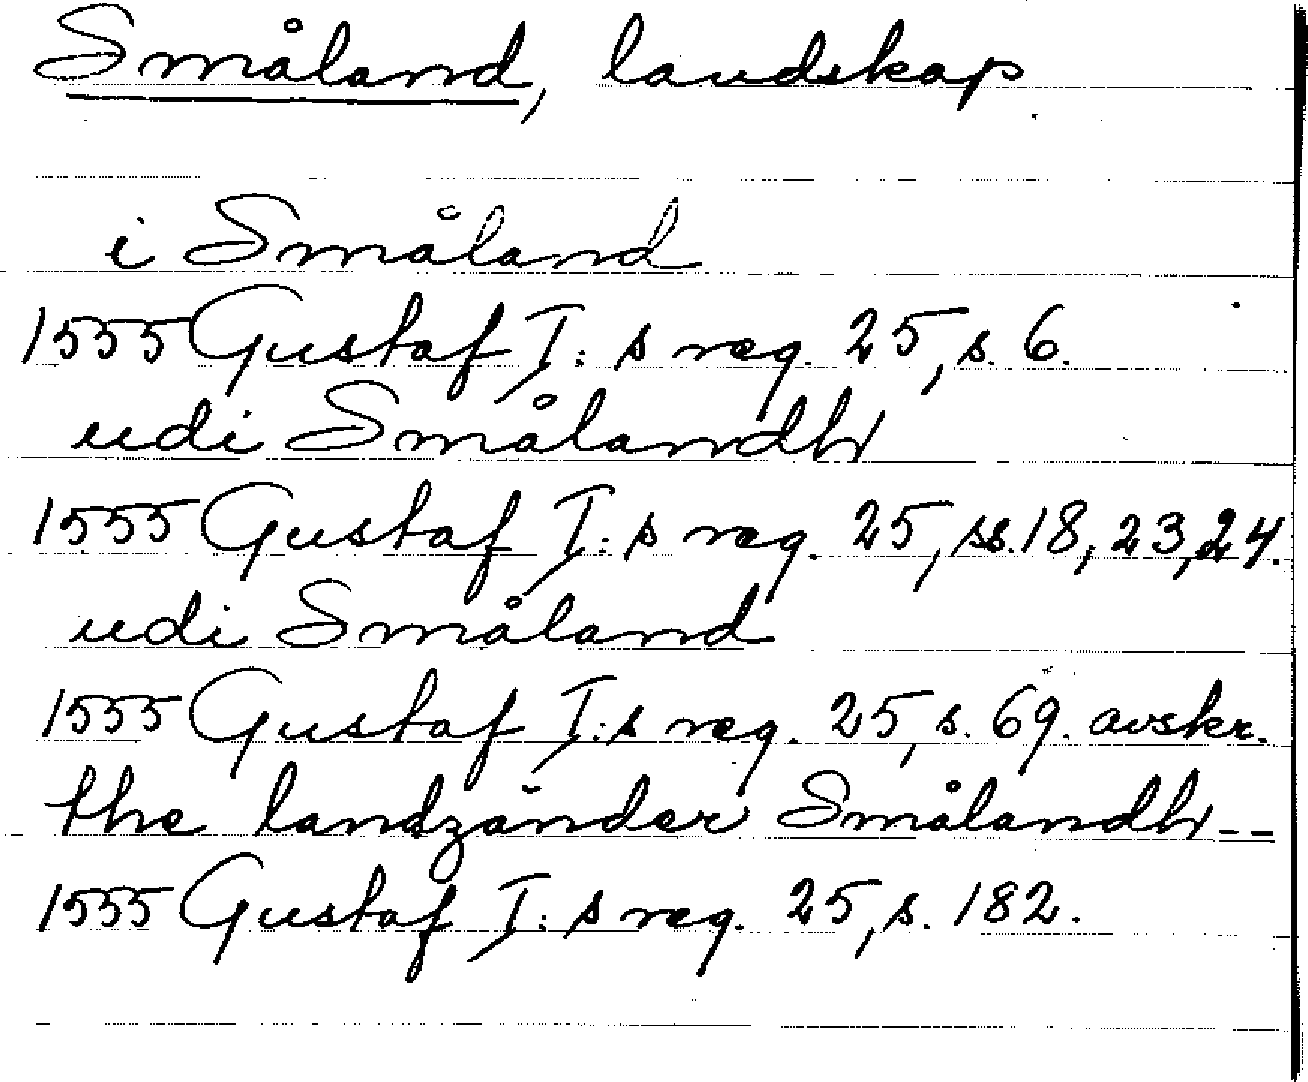 Småland, landskap
i Småland
1555 Gustaf I:s reg. 25, s. 6.
udi Smålandh
1555 Gustaf I:s reg. 25, ss. 18, 23, 24.
udi Småland
1555 Gustaf I:s reg. 25, s. 69. avskr.
the landzänder Smålandh --
1555 Gustaf I:s reg. 25, s. 182.